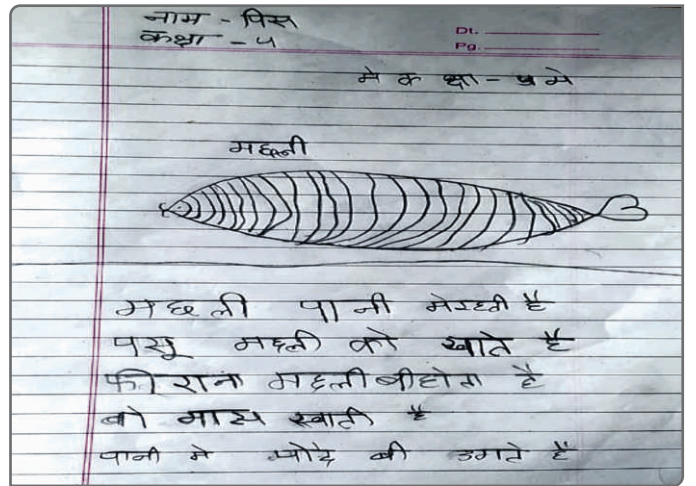 नाम - पिस
कक्षा - ५
Dt.
Pg.
मे क क्षा - ५ मे
मछली
मछली पानी मेरहती है
पसू मछली को खाते है
फीराना मछली बीहोता है
बो मास खाती है
पानी मे पोदे बी उगते है